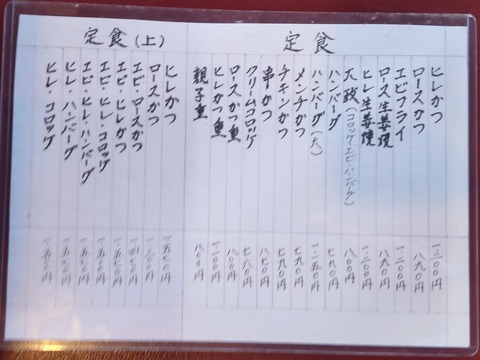 定食
ヒレかつ 一二〇〇円
ロースかつ 八九〇円
エビフライ 一・二〇〇円
ロース生姜焼 八九〇円
ヒレ生姜焼 一・二〇〇円
(コロッケ・エビ・ハンバーグ) 八〇〇円
ハンバーグ 七九〇円
ハンバーグ(大) 一・一五〇円
メンチかつ 七九〇円
チキンかつ 七九〇円
串かつ 八七〇円
クリームコロッケ
ロースかつ重 八〇〇円
ヒレかつ重 一一〇〇円
親子重 八〇〇円
定食(上)
ヒレかつ 一・五七〇円
ロースかつ 一・三〇〇円
エビ・ロースかつ
エビ・ヒレかつ 一・五七〇円
エビ・ヒレ・コロッケ 一・五七〇円
エビ・ヒレ・ハンバーグ 一・五七〇円
ヒレ・ハンバーグ 一・五七〇円
ヒレ・コロッケ